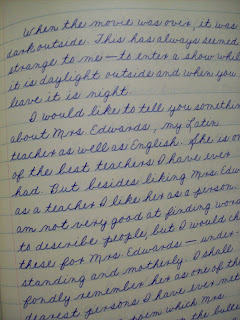 When the movie was over, it was
dark outside. This has always seemed
strange to me — to enter a show while
it is daylight outside and when you
leave it is night.
I would like to tell you somethin
about Mrs. Edwards, my Latin
teacher as well as English. She is on
of the best teachers I have ever
had. But besides liking Mrs. Edw
as a teacher I like her as a person.
am not very good at finding word
to describe people, but I would ch
these for Mrs. Edwards — under-
standing and motherly. I shall
fondly remember her as one of th
dearest persons I have ever met
poem which Mrs.
on the bulle